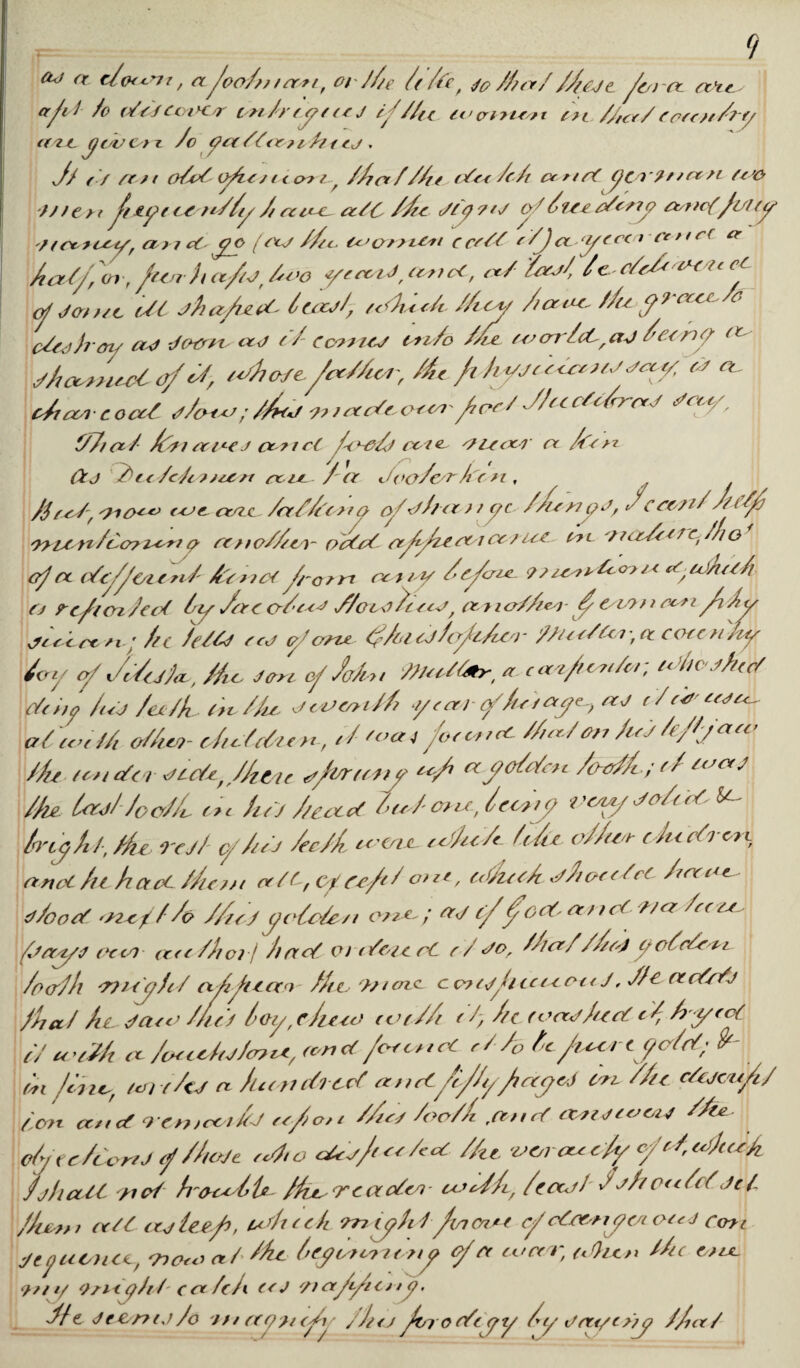 9
as a clown, a footman, or the like, so that these fora are
apt to discover intrigues if the women in that country
are given to gallantries.
It is an odd opinion, that the dutch and german wo
men frequently have all the signs of breeding and fully
nancy, and go (as the women call it) a year and a
half, or, perhaps, two years, and, at last, be delivered
of some ill shaped beast, which they have the grace to
destroy as soon as it comes into the world, as being
ashamed of it, whose father, the physicians say, is a
charcoal stow; this made over foot Hudibras say,
That knaves and fools are near a kin
As Dutchmen are to Sooterkin,
But, now we are talking of strange things, I cannot help
mentioning another odd appearance in nature, tho'
of a different kind from any before mentioned, which
is reported by Jacobus Horstius, another german phy
sician; he tells us of one Christopher Muller, a country
boy of Silesia, the son of John Muller, a carpenter; who shed
ding his teeth in the seventh year of his age, as it is usu
al with other children, it was found that on his left jaw
the under side, there sprung up a golden tooth; it was
the last tooth in his head but one, being very solid &
bright, the rest of his teeth were white like other children,
and he had them all, except one, which should have
stood next to this golden one; as if god and nature
(says our author) had ordered it so, that this golden
tooth might appear the more conspicuous. He adds
that he saw this boy, chew with it, he washed it, tryed
it with a touchstone, and found it to be pure gold; &
in fine, writes a hundred and fifty pages in the descrip
tion and remarks upon this tooth, and answers the
objections of those who disputed the veracity of it, which
I shall not trouble the reader with, least I should set
them all asleep, which might prove of dangerous con
sequence, now at the beginning of a war, when the ene
my might catch us napping.
He seems to magnify this prodigy by saying that